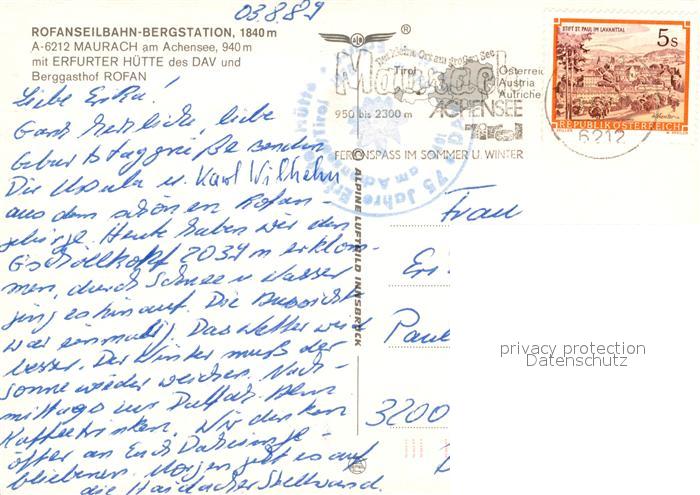 03.8.89
ROFANSEILBAHN-BERGSTATION, 1840 m
A-6212 MAURACH am Achensee, 940 m
mit ERFURTER HÜTTE des DAV und
Berggasthof ROFAN
Liebe Erika!
Ganz herzliche, liebe
Geburtstagsgrüße senden
Dir Ursula u. Karl Wilhelm
aus dem schönen Rofan-
gebirge. Heute haben wir den
Gschöllkopf 2039 m erklom-
men, durch Schnee u. Wasser
ging es hinauf. Die Aussicht
war einmalig. Das Wetter wird
besser. Der Winter muß der
Sonne wieder weichen. Nach-
mittags
Kaffeetrinken. Wir denken
öfter an Euch Daheimge-
bliebenen. Morgen geht es auf
die Haidachstellwand.
Maurach
Tirol
ACHENSEE
950 bis 2300 m
FERIENSPASS IM SOMMER U. WINTER
Österreich
Austria
Autriche
75 Jahre
am Achensee
STIFT ST. PAUL IM LAVANTTAL
5s
REPUBLIK ÖSTERREICH
6212
ALPINE LUFTBILD INNSBRUCK
Frau
Eri
Paul
3200
privacy protection
Datenschutz
®